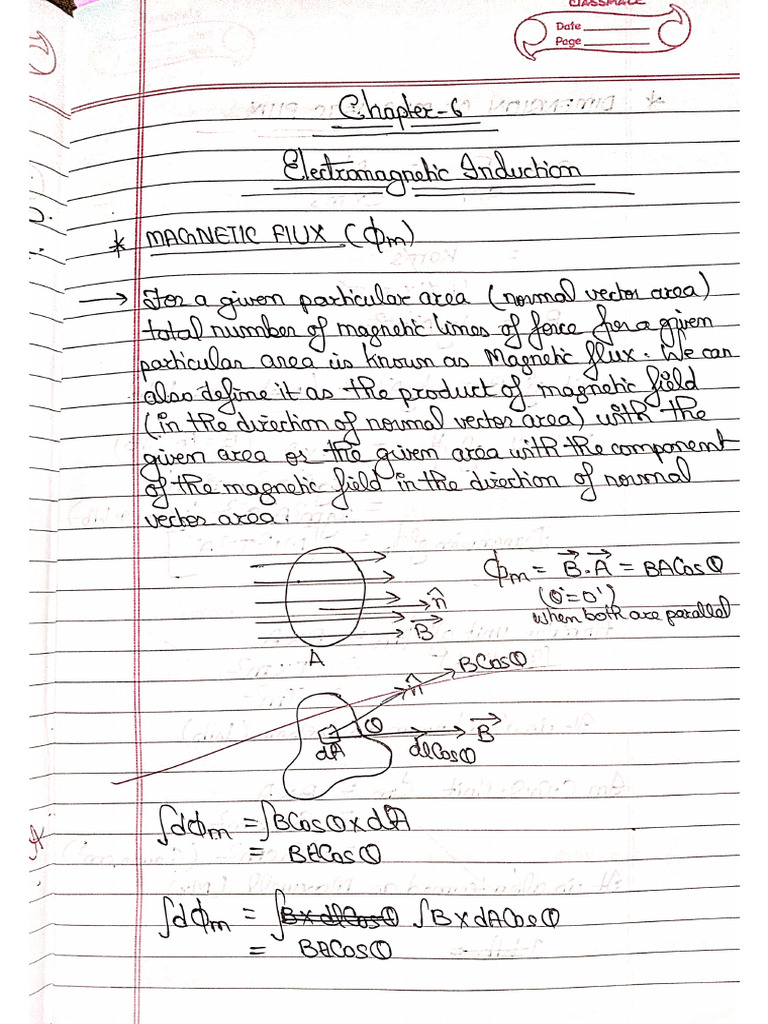 CLASSMATE
Date
Page
Chapter-6
Electromagnetic Induction
* MAGNETIC FLUX (ϕm)
→ For a given particular area (normal vector area)
total number of magnetic lines of force for a given
particular area is known as Magnetic flux. We can
also define it as the product of magnetic field
(in the direction of normal vector area) with the
given area or the given area with the component
of the magnetic field in the direction of normal
vector area.
ϕm = B⃗.A⃗ = BACosθ
(θ=0°)
when both are parallel
n̂
B⃗
A
BCosθ
n̂
θ
B⃗
dA
dlCosθ
∫dϕm = ∫BCosθ x dA
= BACosθ
∫dϕm = ∫B x dlCosθ ∫B x dACosθ
= BACosθ